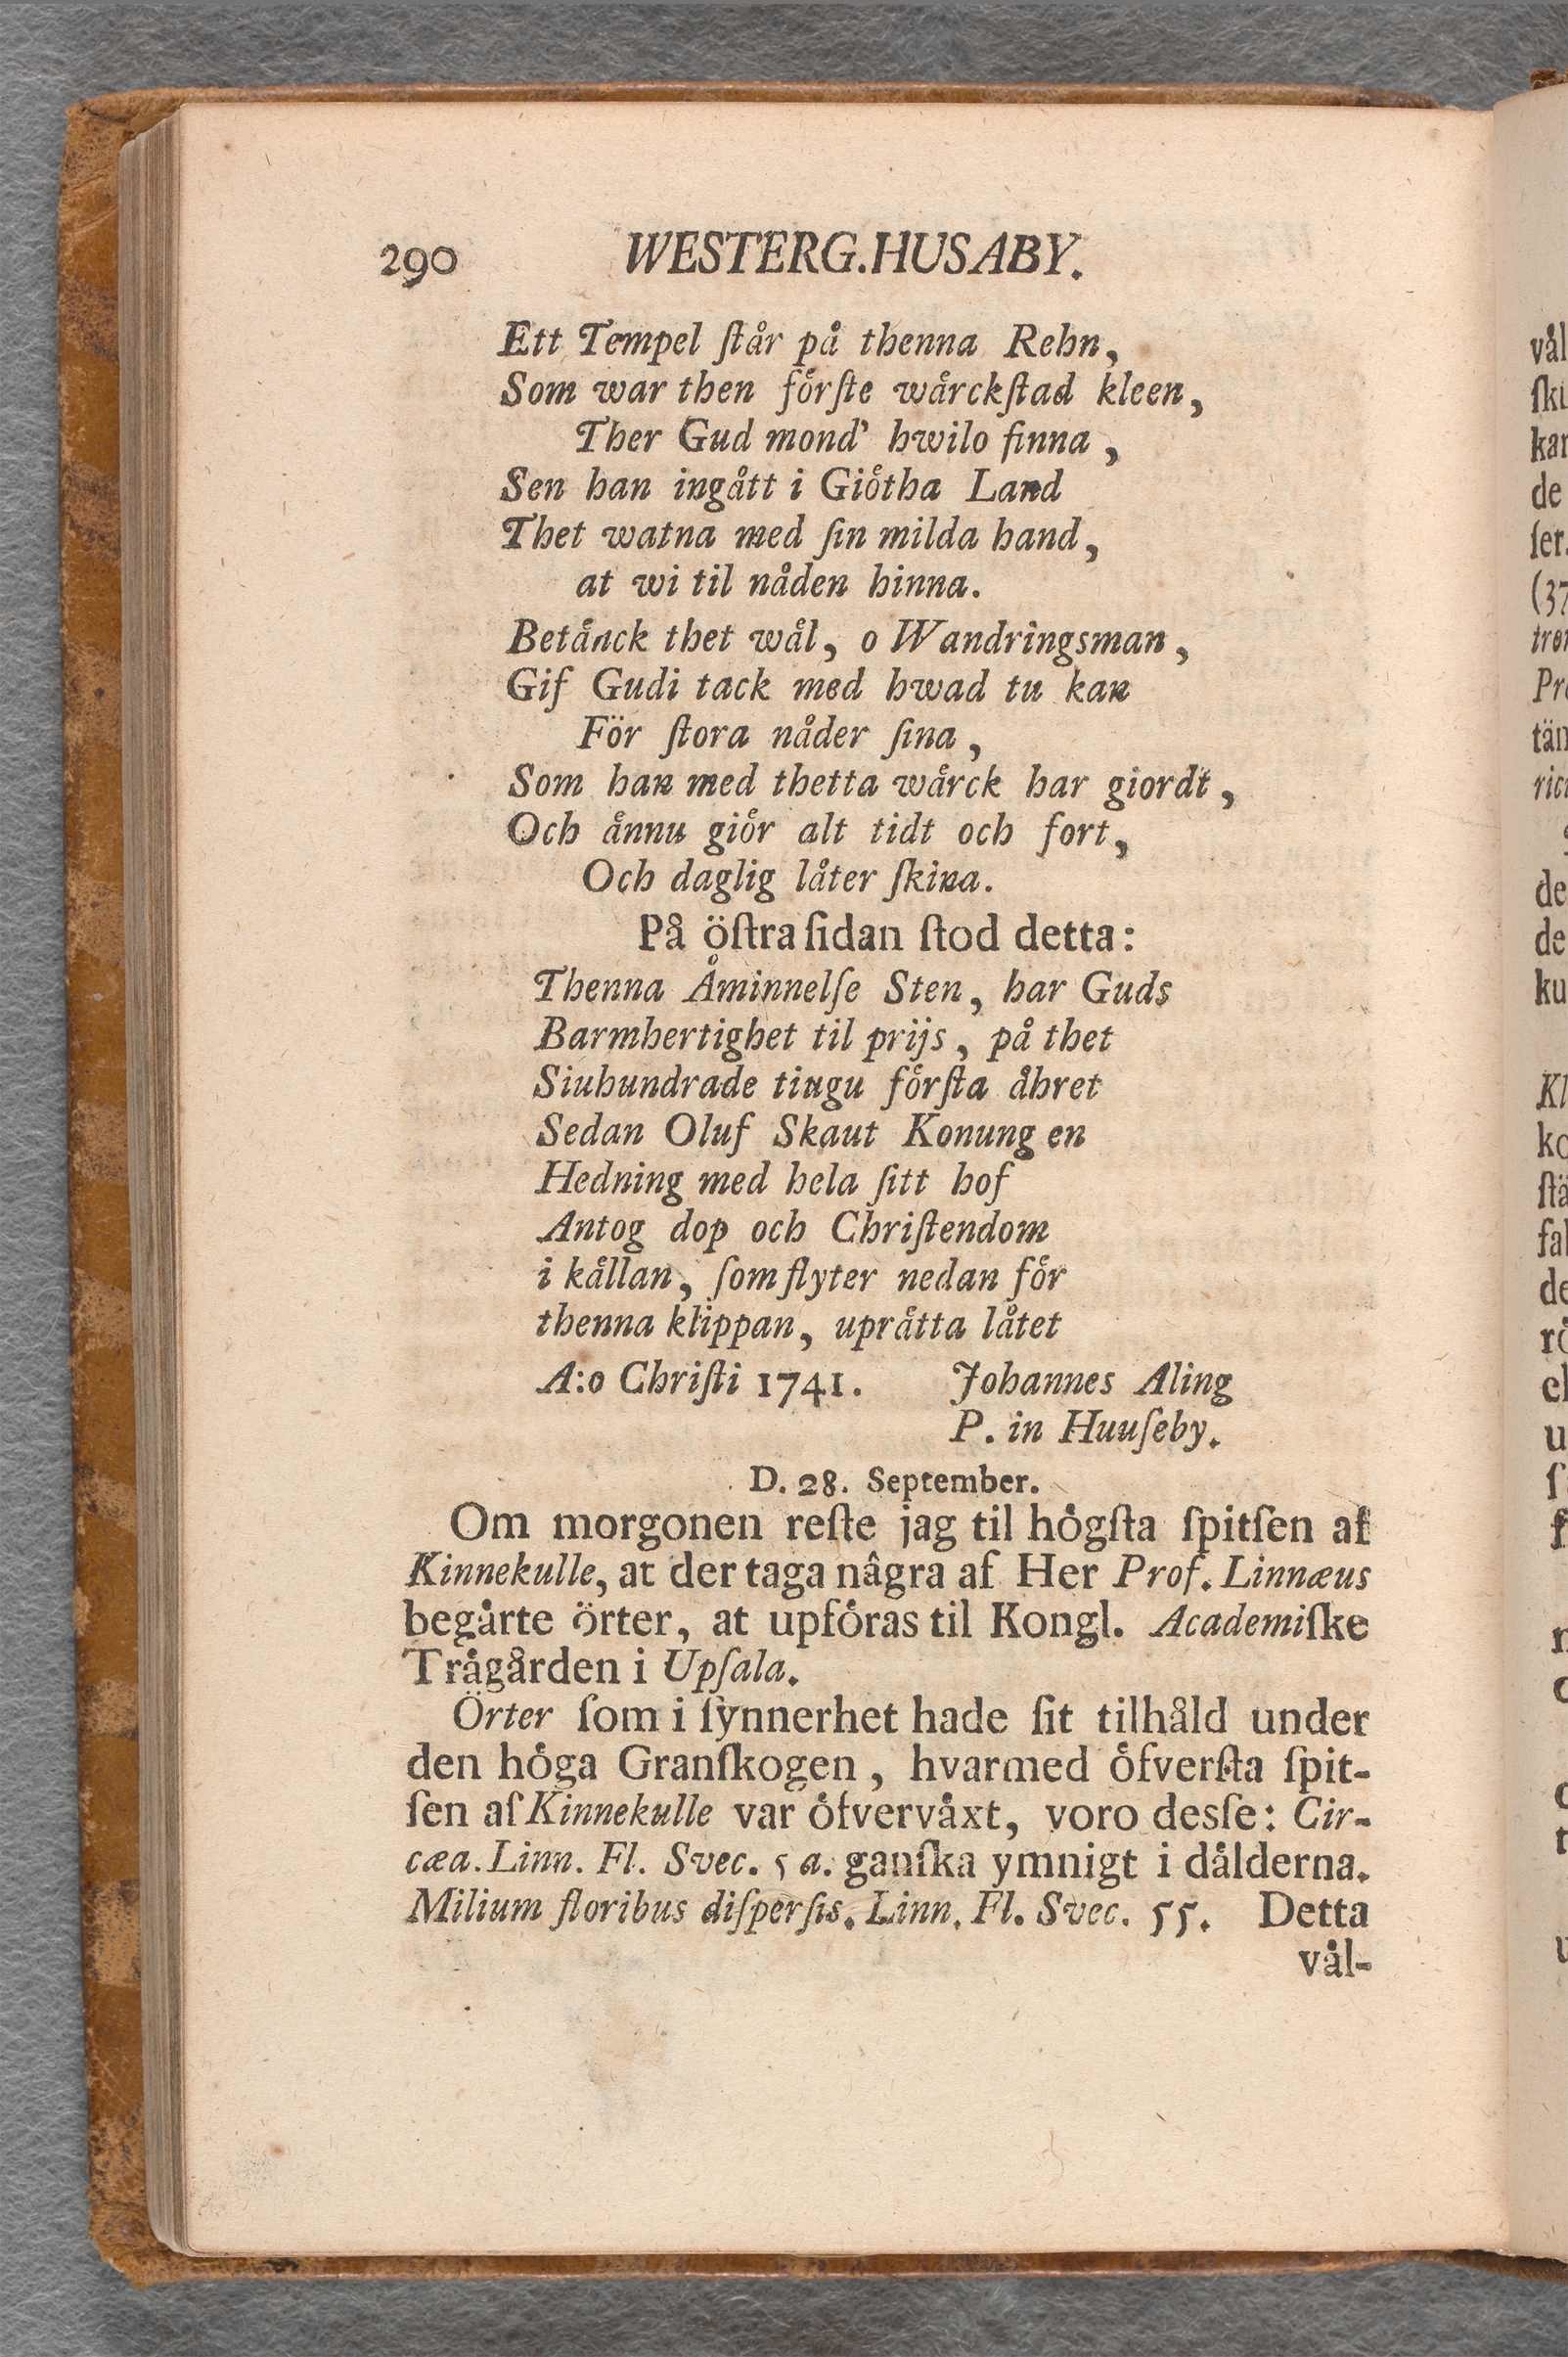 290 WESTERG.HUSABY.
Ett Tempel ſtår på thenna Rehn,
Som war then förſte wärckſtad kleen,
Ther Gud mond' hwilo finna,
Sen han ingått i Giötha Land
Thet watna med ſin milda hand,
at wi til nåden hinna.
Betänck thet wäl, o Wandringsman,
Gif Gudi tack med hwad tu kan
För ſtora nåder ſina,
Som han med thetta wärck har giordt,
Och ännu giör alt tidt och fort,
Och daglig låter ſkina.
På öſtra ſidan ſtod detta:
Thenna Åminnelſe Sten, har Guds
Barmhertighet til prijs, på thet
Siuhundrade tiugu förſta åhret
Sedan Oluf Skaut Konung en
Hedning med hela ſitt hof
Antog dop och Chriſtendom
i källan, ſom flyter nedan för
thenna klippan, uprätta låtet
A:o Chriſti 1741. Johannes Aling
P. in Huuſeby.
D. 28. September.
Om morgonen reſte jag til högſta ſpitſen af
Kinnekulle, at der taga några af Her Prof. Linnæus
begärte örter, at upföras til Kongl. Academiſke
Trägården i Upſala.
Örter ſom i ſynnerhet hade ſit tilhåld under
den höga Granſkogen, hvarmed öfverſta ſpit-
ſen af Kinnekulle var öfverväxt, voro desſe: Cir-
cæa. Linn. Fl. Svec. 5 a. ganſka ymnigt i dälderna.
Milium floribus diſperſis. Linn. Fl. Svec. 55. Detta
väl-